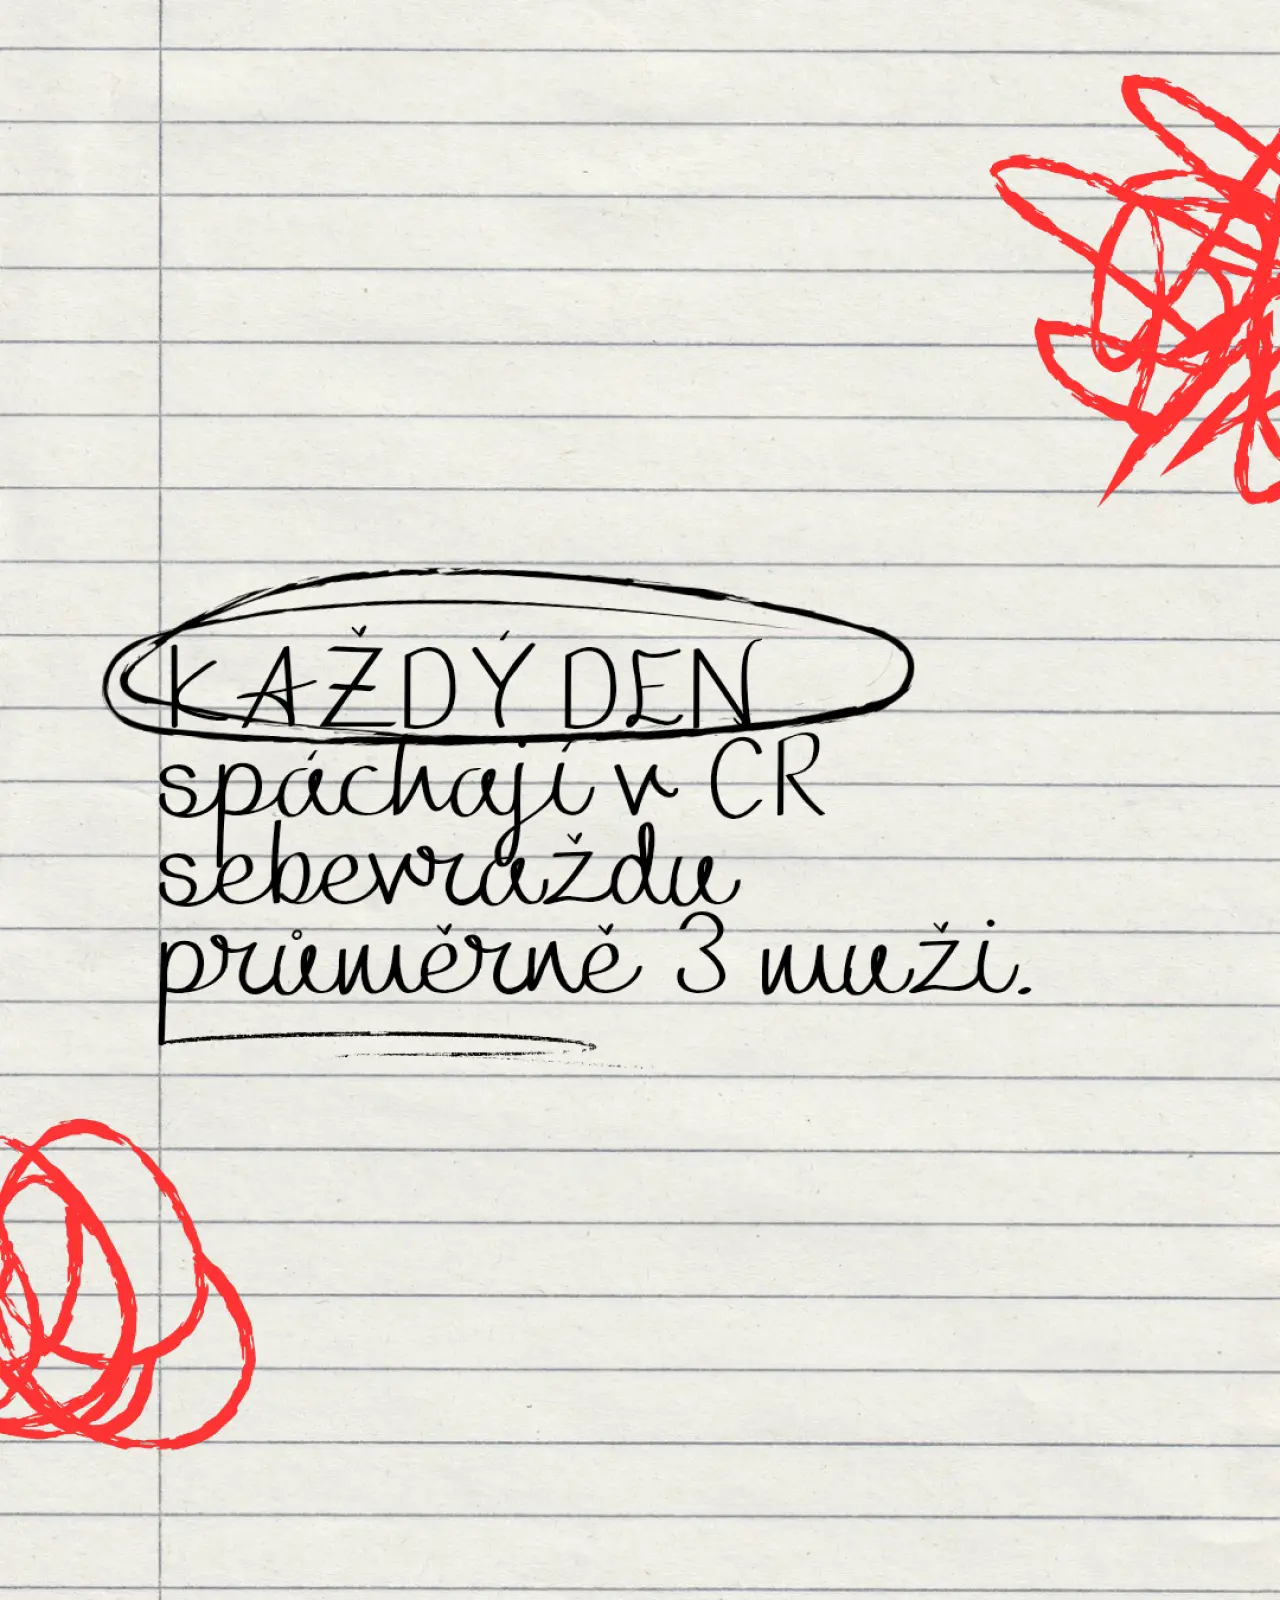 KAŽDÝ DEN
spáchají v ČR
sebevraždu
průměrně 3 muži.